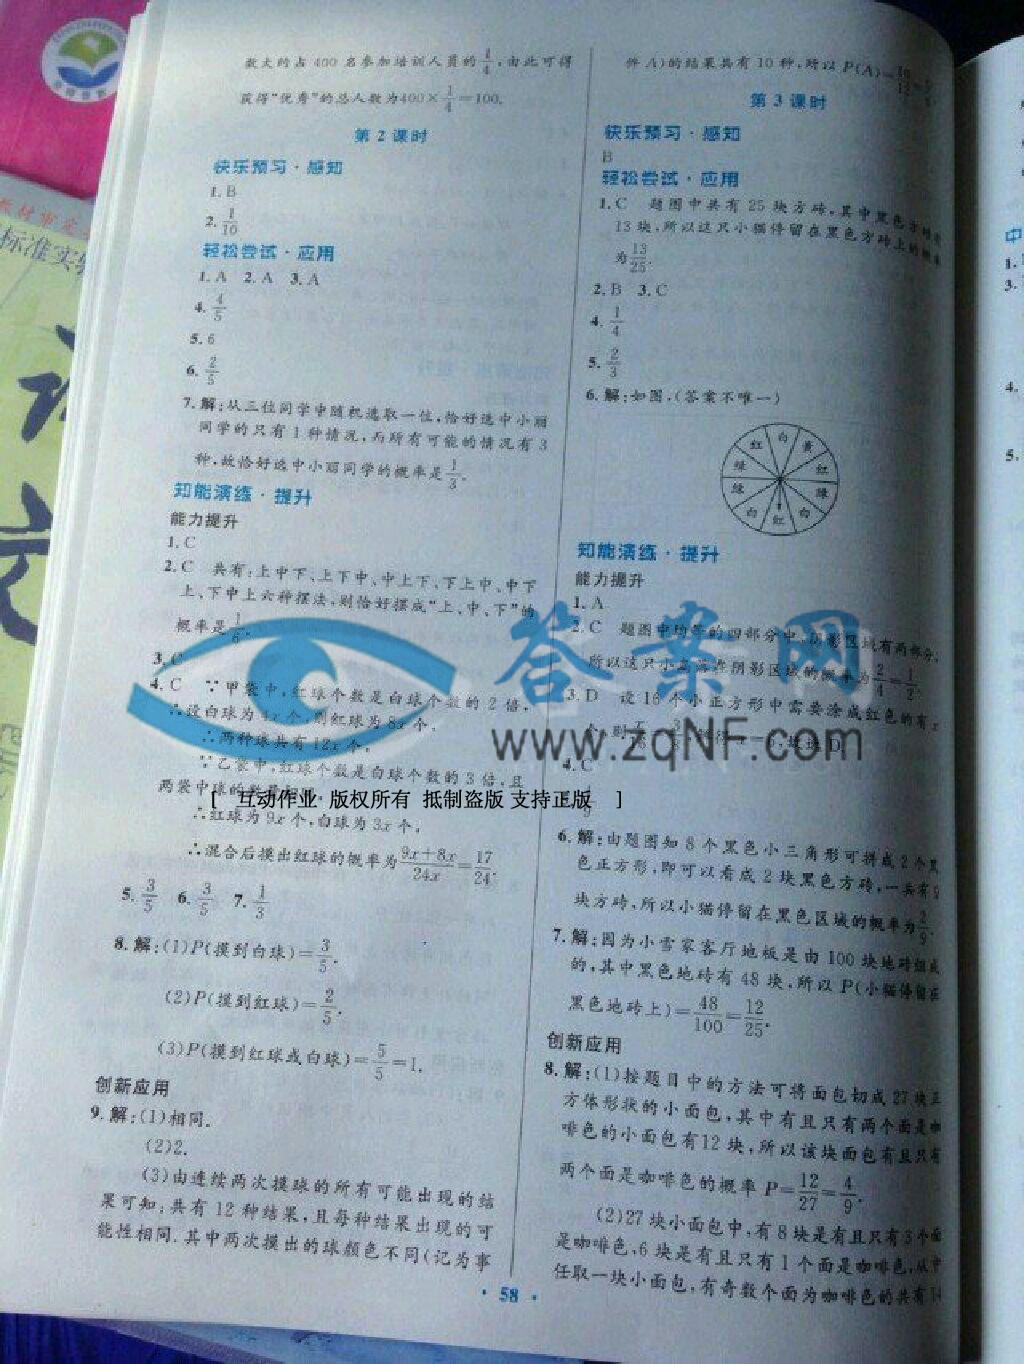 数大的占400名参加培训人员的1/4,由此可得
获得“优秀”的总人数为400×1/4=100.
第2课时
快乐预习·感知
1.B
2.1/10
轻松尝试·应用
1.A 2.A 3.A
4.4/5
5.6
6.2/5
7.解:从三位同学中随机选取一位,恰好选中小丽
同学的只有1种情况,而所有可能的情况有3
种,故恰好选中小丽同学的概率是1/3.
知能演练·提升
能力提升
1.C
2.C 共有:上中下、上下中、中上下、下上中、中下
上、下中上六种摆法,则恰好摆成“上、中、下”的
概率是1/6.
3.C
4.C ∵甲袋中,红球个数是白球个数的2倍,
∴设白球为4x个,则红球为8x个,
∴两种球共有12x个.
∵乙袋中,红球个数是白球个数的3倍,且
两袋中球的数量
∴红球为9x个,白球为3x个.
∴混合后摸出红球的概率为(9x+8x)/24x=17/24.
5.3/5 6.3/5 7.1/3
8.解:(1)P(摸到白球)=3/5.
(2)P(摸到红球)=2/5.
(3)P(摸到红球或白球)=5/5=1.
创新应用
9.解:(1)相同.
(2)2.
(3)由连续两次摸球的所有可能出现的结
果可知:共有12种结果,且每种结果出现的可
能性相同.其中两次摸出的球颜色不同(记为事
件A)的结果共有10种,所以P(A)=10/12=5/6.
第3课时
快乐预习·感知
B
轻松尝试·应用
1.C 题图中共有25块方砖,其中黑色方砖有
13块,所以这只小猫停留在黑色方砖上的概率
为13/25.
2.B 3.C
4.1/4
5.2/3
6.解:如图,(答案不唯一)
红 白 黄
绿 红
绿 绿
白 红 白
知能演练·提升
能力提升
1.A
2.C 题图中均等的四部分中,阴影区域有两部分,
所以这只小鸟落在阴影区域的概率为2/4=1/2.
3.D 设16个小正方形中需要涂成红色的有x
个,则
4.C
6.解:由题图知8个黑色小三角形可拼成2个黑
色正方形,即可以看成2块黑色方砖,一共有9
块方砖,所以小猫停留在黑色区域的概率为2/9.
7.解:因为小雪家客厅地板是由100块地砖组成
的,其中黑色地砖有48块,所以P(小猫停留在
黑色地砖上)=48/100=12/25.
创新应用
8.解:(1)按题目中的方法可将面包切成27块正
方体形状的小面包,其中有且只有两个面是咖
啡色的小面包有12块,所以该块面包有且只有
两个面是咖啡色的概率P=12/27=4/9.
(2)27块小面包中,有8块是有且只有3个面
是咖啡色,6块是有且只有1个面是咖啡色,从中
任取一块小面包,有奇数个面为咖啡色的共有14
·58·
答案网
www.zqNF.com
[ 互动作业 版权所有 抵制盗版 支持正版 ]
标准实验
语
文
中
1.
3.
4.
5.